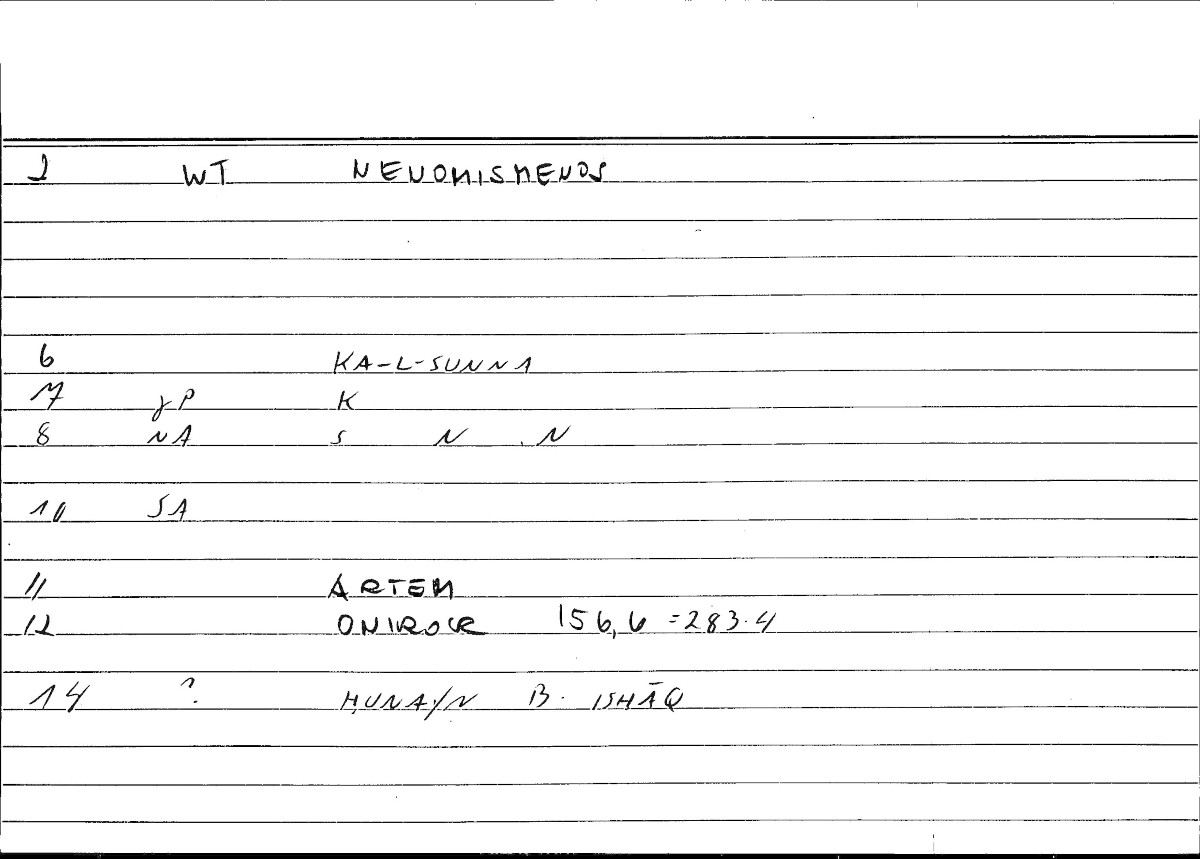 2 WT NENOMISMENOS
6 KA-L-SUNNA
7 γP K
8 NA S N . N
10 SA
11 ARTEM
12 ONIROCR 156,6 =283.4
14 ? ḤUNAYN B. ISḤĀQ